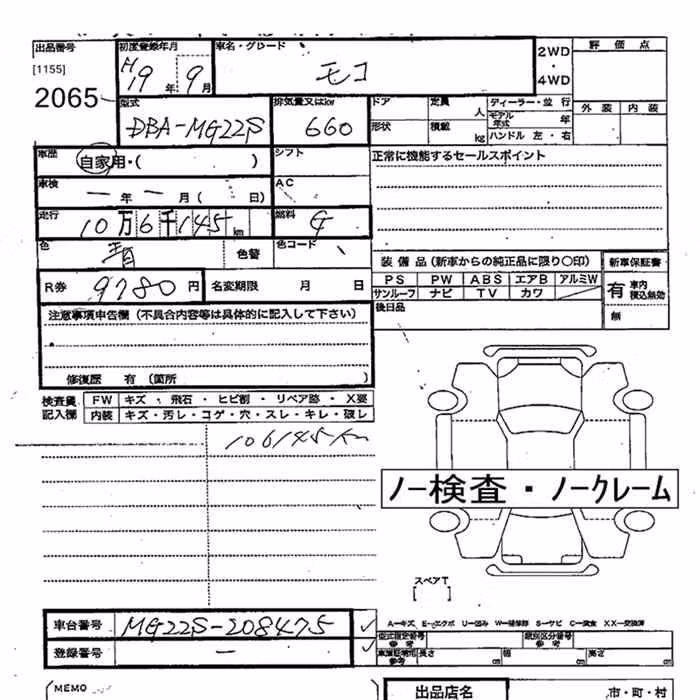 出品番号 初度登録年月 車名・グレード 評価点
[1155] H19年 9月 モコ 2WD・4WD
2065 外装 内装
型式 排気量又はkw ドア 定員 人 ディーラー・並行
DBA-MG22S 660 形状 積載 kg モデル年式 年
ハンドル 左・右
車歴 自家用・( ) シフト 正常に機能するセールスポイント
車検 ー年ー月( 日) AC
走行 10万6千145km 燃料 G
色 青 色替 色コード
装備品(新車からの純正品に限り○印) 新車保証書
R券 9780円 名変期限 月 日 PS PW ABS エアB アルミW 有 車内積込無効
サンルーフ ナビ TV カワ
注意事項申告欄(不具合内容等は具体的に記入して下さい) 後日品 無
修復歴 有(箇所 )
検査員 FW キズ・飛石・ヒビ割・リペア跡・X要
記入欄 内装 キズ・汚レ・コゲ・穴・スレ・キレ・破レ
106145km
ノー検査・ノークレーム
スペアT
[ ]
車台番号 MG22S-208475 Aーキズ Eーエクボ Uー凹み Wー補修跡 Sーサビ Cー腐食 XXー交換済
型式指定番号 参考 類別区分番号 参考
登録番号 ー 車庫証明用 参考 長さ cm 幅 cm 高さ cm
MEMO 出品店名 市・町・村